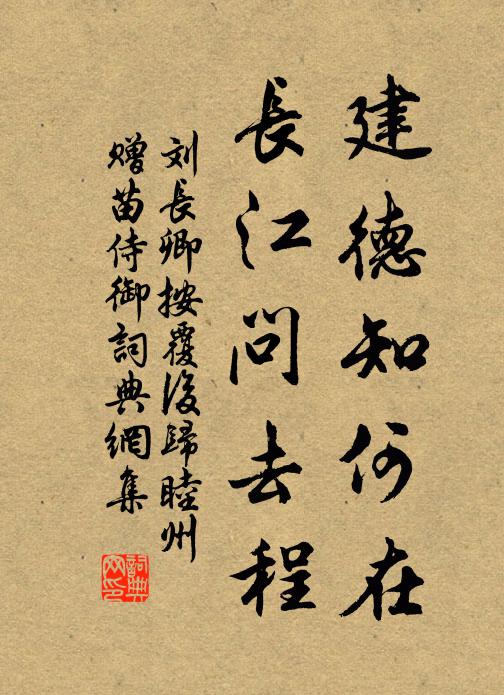 建德知何在
長江問去程
刘長卿按覆後歸睦州
赠苗侍御詞典網集
詞典
网印